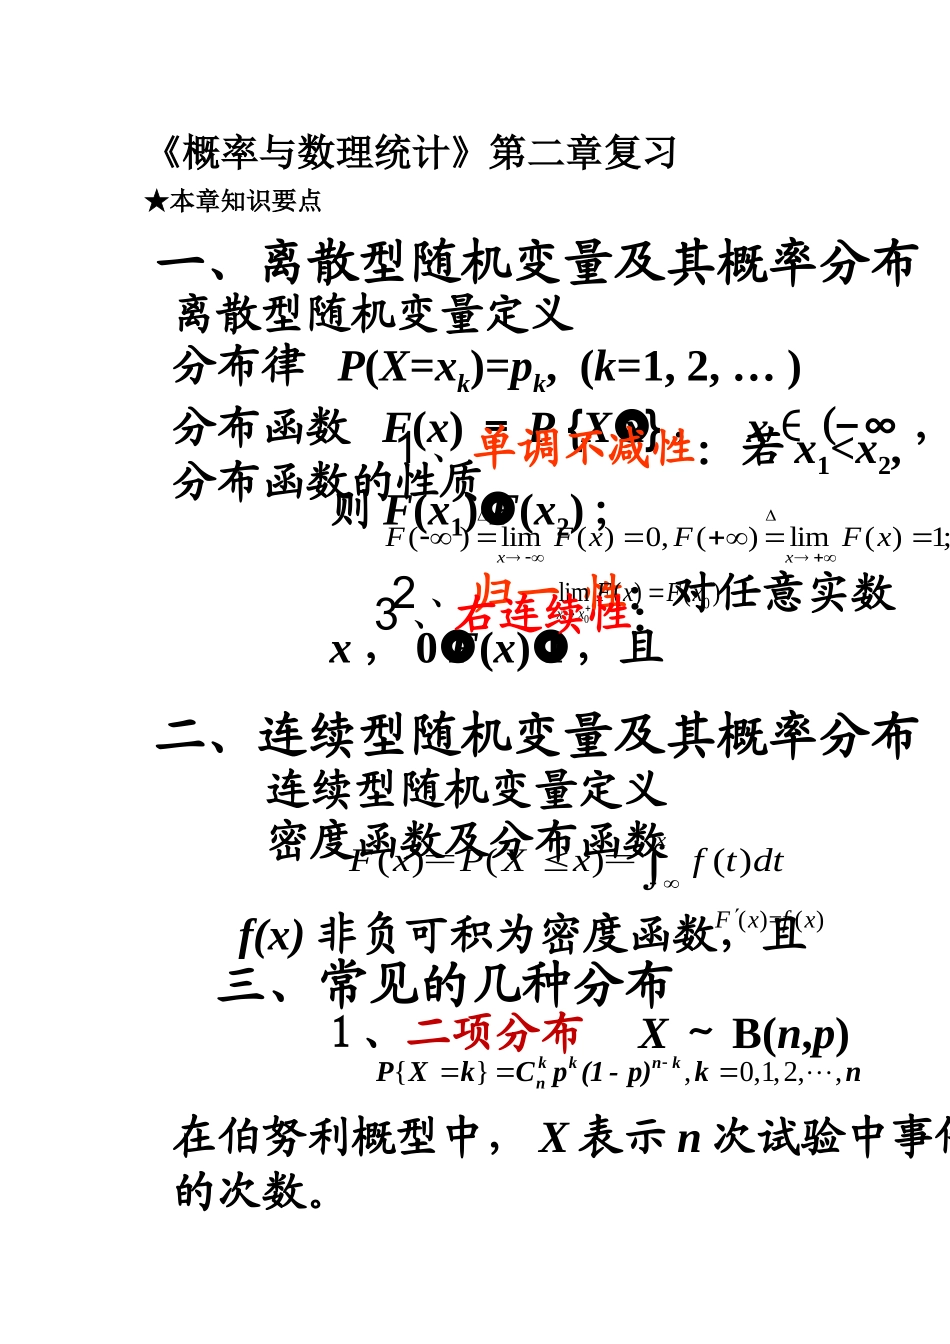 《概率与数理统计》第二章复习
★本章知识要点
一、离散型随机变量及其概率分布
离散型随机变量定义
分布律 P(X=xk)=pk, (k=1, 2, … )
分布函数 F(x) = P {X }, x ∈ (−∞ ,
1、单调不减性：若 x1<x2,
分布函数的性质
则 F(x1) F(x2) ;
F(-∞) ≜ lim x→-∞ F(x) = 0, F(+∞) ≜ lim x→+∞ F(x) = 1;
2、归一性：对任意实数
3、右连续性：
lim F(x) = F(x0)
x ， 0 F(x) 1 ，且
二、连续型随机变量及其概率分布
连续型随机变量定义
密度函数及分布函数
F(x) = P(X ≤ x) = ∫ x -∞ f(t)dt
F′(x) = f(x)
f(x) 非负可积为密度函数，且
三、常见的几种分布
1 、二项分布 X ~ B(n,p)
P{X = k} = C n k p k (1 - p) n-k , k = 0,1,2,⋯,n
在伯努利概型中， X 表示 n 次试验中事件
的次数。